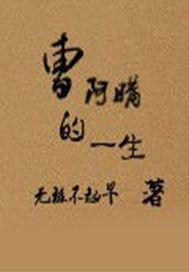 曹阿瞒
的一生
无不起早 著